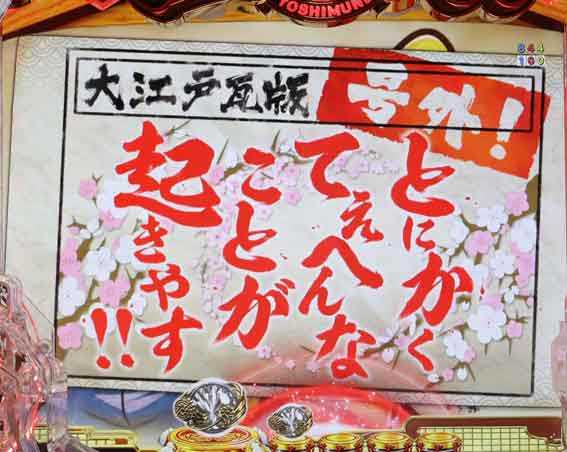 YOSHIMUNE
844
100
大江戸瓦版
号外!
とにかく
てぇへんな
ことが
起きやす!!